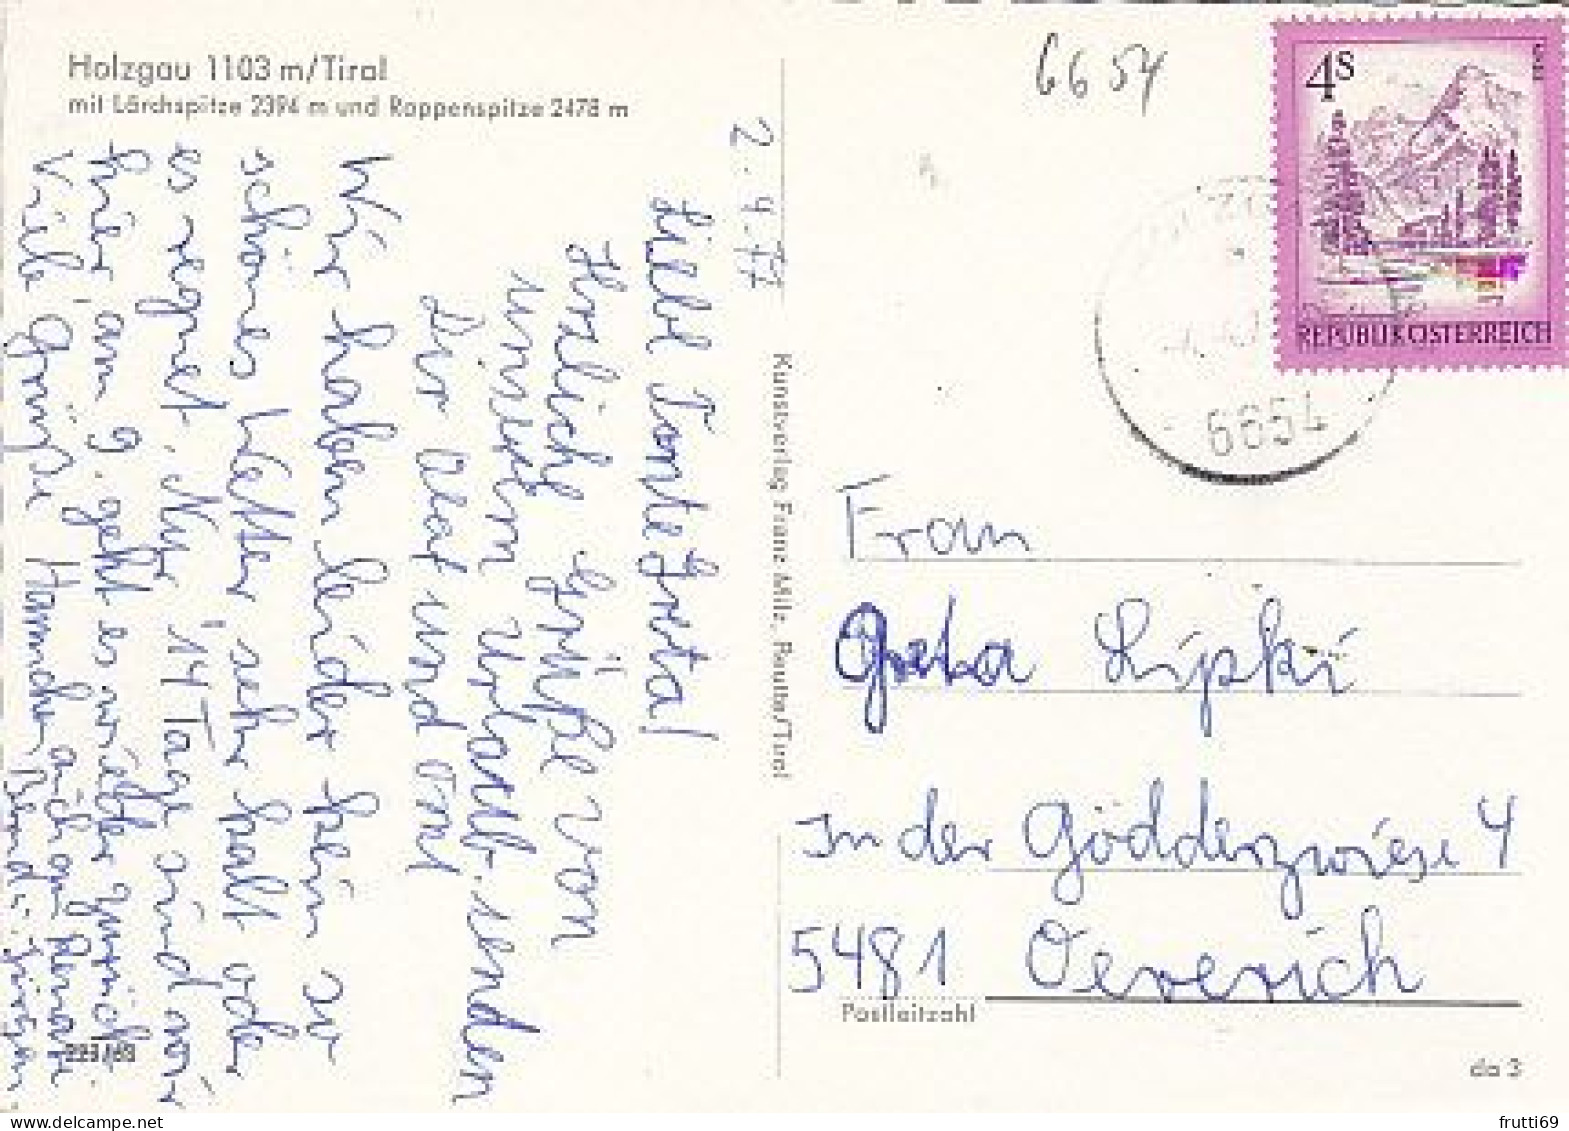 Holzgau 1103 m/Tirol
mit Lärchspitze 2394 m und Rappenspitze 2478 m
2.4.77
Liebe Tante Greta!
Herzliche Grüße von
unserem Urlaub senden
Dir Olat und Omi
Wir haben leider kein so
schönes Wetter sehr kalt oder
es regnet. Nur 14 Tage sind wir
hier am 9. geht es wieder zurück
Viele Grüße Hannchen auch an Renate
Bernd + Jürgen
223/63
Kunstverlag Franz Milz, Reutte/Tirol
6654
4S
REPUBLIK ÖSTERREICH
6654
Frau
Greta Lipki
In der Gödderzwiese 4
5481 Oeverich
Postleitzahl
da 3
frutti69